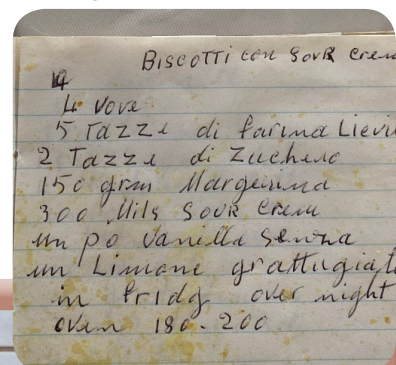 Biscotti con Sour Crem
4
4 vove
5 Tazze di farina Lievi
2 Tazze di Zuchero
150 gram Margerina
300 Mils Sour Crem
un po vanilla
un Limone grattugiat
in fridg over night
oven 180-200